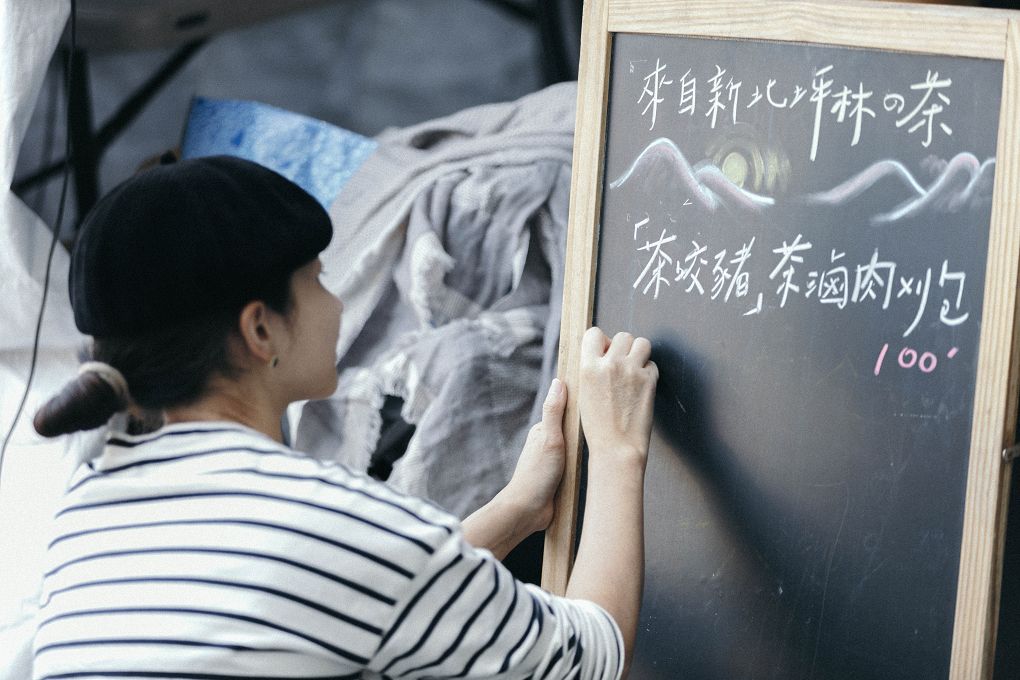 「來自新北坪林の茶
「茶咬豬」茶滷肉刈包
100'